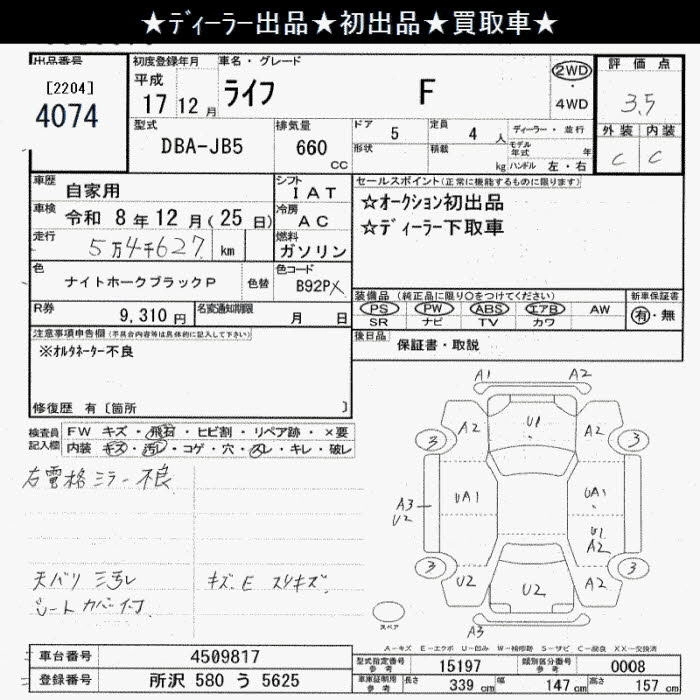 ★ディーラー出品★初出品★買取車★
出品番号
[2204]
4074
初度登録年月
平成
17 12 月
車名・グレード
ライフ F
2WD
・
4WD
評価点
3.5
外装 内装
C C
型式
DBA-JB5
排気量
660 CC
ドア 5
形状
定員 4 人
積載 kg
ディーラー・並行
モデル年式 年
ハンドル 左・右
車歴 自家用
シフト IAT
車検 令和 8年 12月(25日)
冷房 AC
走行 5万4千627 km
燃料 ガソリン
色 ナイトホークブラックP 色替
色コード B92PX
R券 9,310円
名変通知期限 月 日
セールスポイント(正常に機能するものに限ります)
☆オークション初出品
☆ディーラー下取車
装備品(純正品に限り○をつけてください)
PS PW ABS エアB AW
SR ナビ TV カワ
新車保証書
有・無
後日品 保証書・取説
注意事項申告欄(不具合内容等は具体的に記入して下さい)
※オルタネーター不良
修復歴 有[箇所 ]
検査員記入欄
FW キズ・飛石・ヒビ割・リペア跡・×要
内装 キズ・汚レ・コゲ・穴・スレ・キレ・破レ
右電格ミラー不良
天バリ 三汚レ
シートカバー付
キズ.E スリキズ.
A1 A2
A2 U1 A2
3 3
UA1 UA1
A3
U2
U1
A2
3 3
U2 U2 A2
A3
スペア
A-キズ E-エクボ U-凹み W-補修跡 S-サビ C-腐食 XX-交換済
車台番号 4509817
登録番号 所沢 580 う 5625
型式指定番号 参考 15197
類別区分番号 参考 0008
車車証制用 参考 長さ 339 cm 幅 147 cm 高さ 157 cm